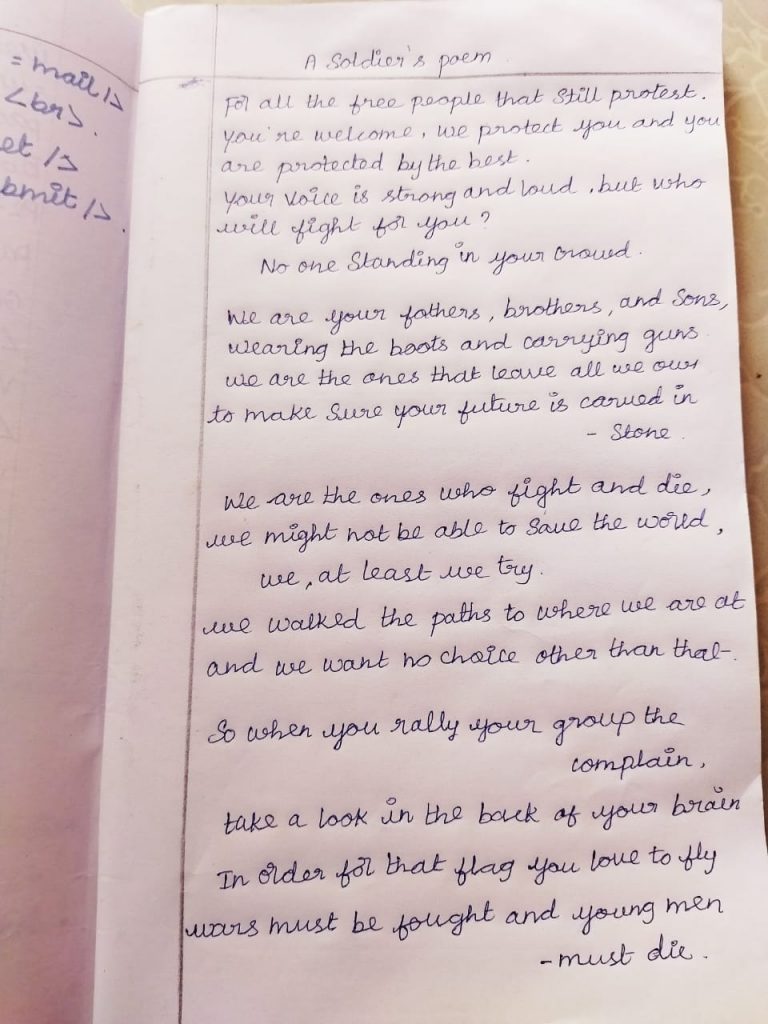 = mail />
<br>.
et />
bmit />.
A Soldier's poem
For all the free people that still protest.
you're welcome, we protect you and you
are protected by the best.
your voice is strong and loud, but who
will fight for you?
No one standing in your crowd.
We are your fathers, brothers, and sons,
wearing the boots and carrying guns
we are the ones that leave all we own
to make sure your future is carved in
- Stone.
We are the ones who fight and die,
we might not be able to save the world,
we, at least we try.
we walked the paths to where we are at
and we want no choice other than that-.
So when you rally your group the
complain,
take a look in the back of your brain
In order for that flag you love to fly
wars must be fought and young men
- must die.